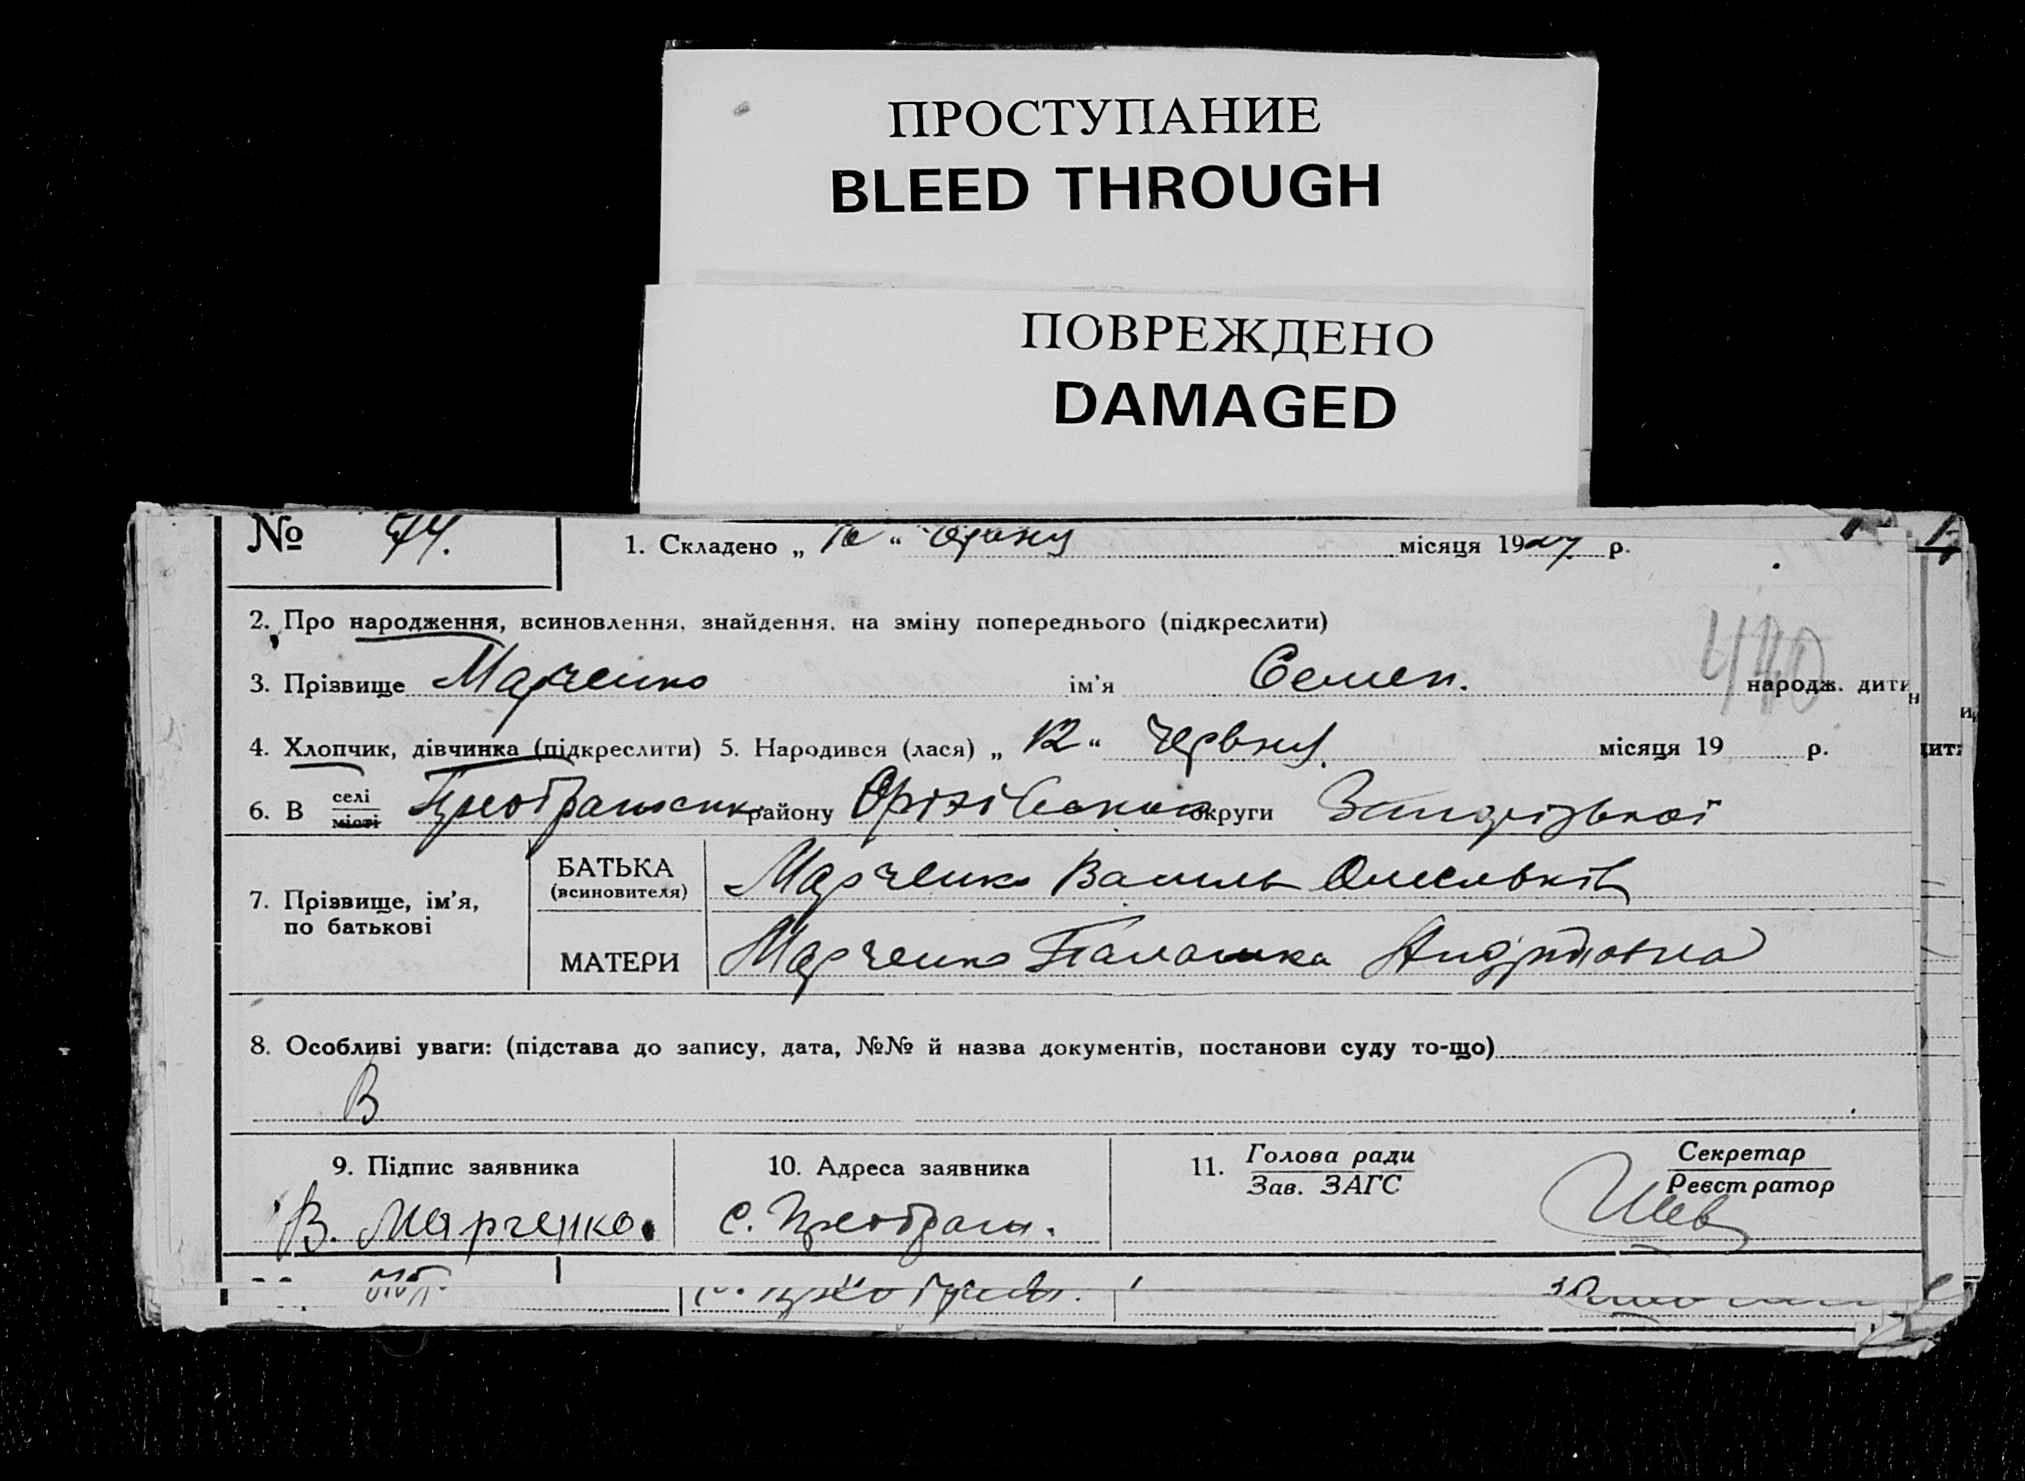 ПРОСТУПАНИЕ
BLEED THROUGH
ПОВРЕЖДЕНО
DAMAGED
№ 1. Складено „ “ Червня місяця 1927 р.
2. Про народження, всиновлення, знайдення, на зміну попереднього (підкреслити)
440
3. Прізвище Марченко ім'я Семен. народж. дити
4. Хлопчик, дівчинка (підкреслити) 5. Народився (лася) „ 12 “ Червня місяця 19 р.
6. В селі місті району округи Запорізької
7. Прізвище, ім'я, по батькові
БАТЬКА (всиновителя) Марченко Василь Омельків
МАТЕРИ Марченко Палашка Андріївна
8. Особливі уваги: (підстава до запису, дата, №№ й назва документів, постанови суду то-що)
В
9. Підпис заявника 10. Адреса заявника 11. Голова ради Зав. ЗАГС Секретар Реєстратор
В. Марченко. с. Преображ. Шев